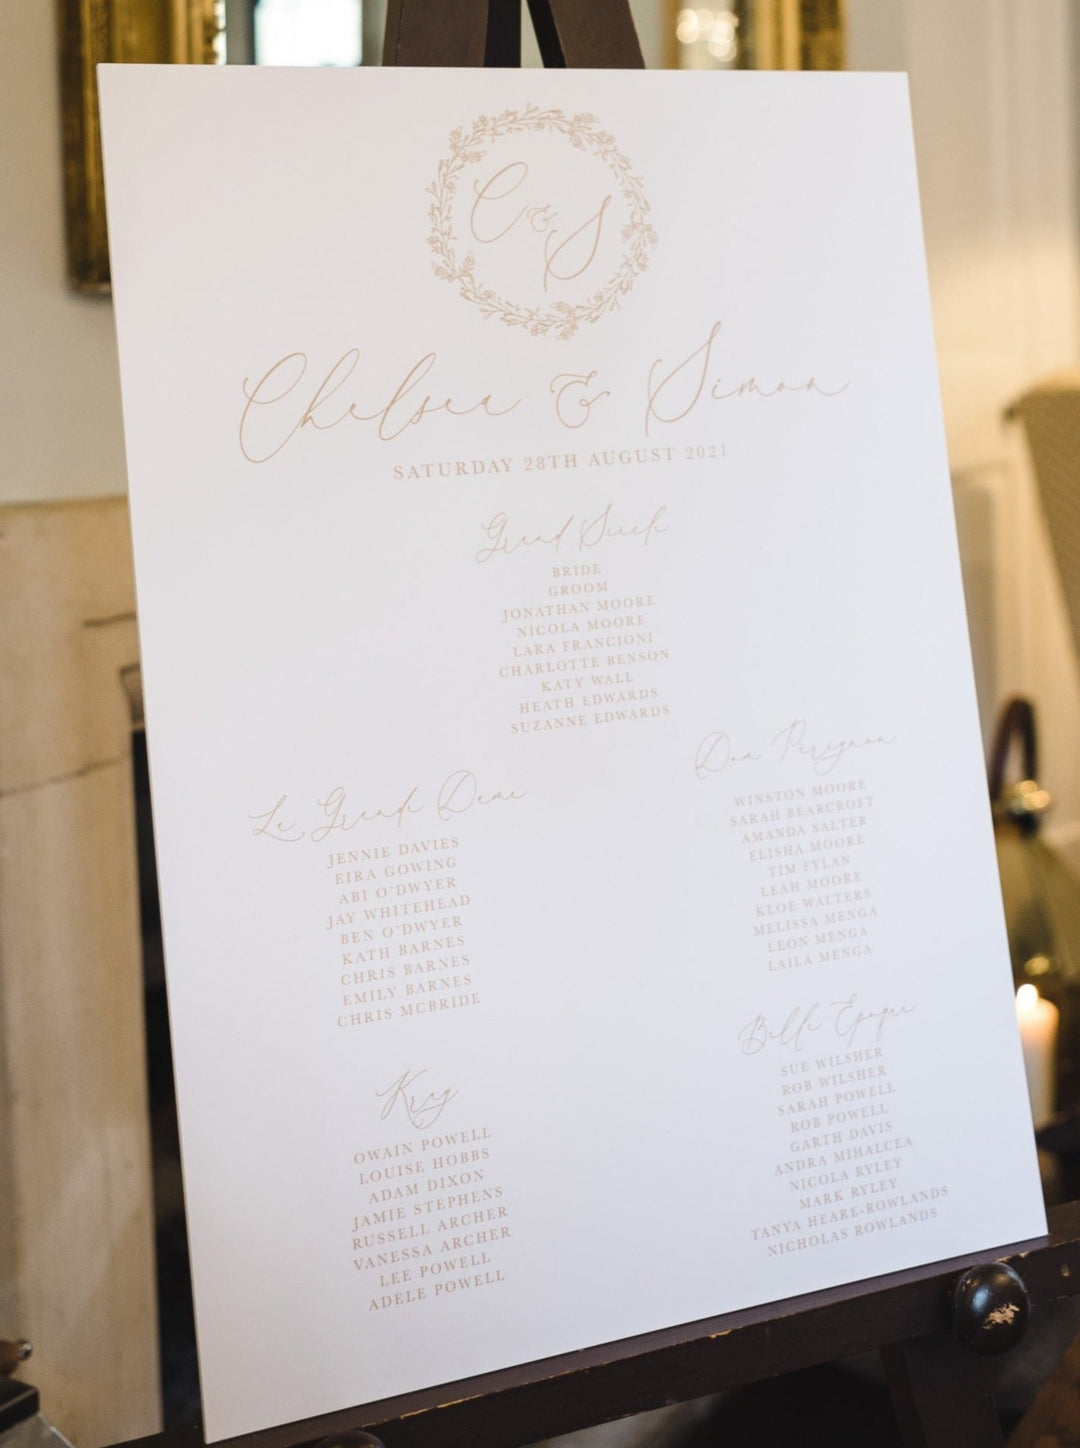 C & S
Chelsea & Simon
SATURDAY 28TH AUGUST 2021
Grand Siècle
BRIDE
GROOM
JONATHAN MOORE
NICOLA MOORE
LARA FRANCIONI
CHARLOTTE BENSON
KATY WALL
HEATH EDWARDS
SUZANNE EDWARDS
Le Grande Dame
JENNIE DAVIES
EIRA GOWING
ABI O'DWYER
JAY WHITEHEAD
BEN O'DWYER
KATH BARNES
CHRIS BARNES
EMILY BARNES
CHRIS MCBRIDE
Dom Perignon
WINSTON MOORE
SARAH BEARCROFT
AMANDA SALTER
ELISHA MOORE
TIM FYLAN
LEAH MOORE
KLOE WALTERS
MELISSA MENGA
LEON MENGA
LAILA MENGA
Krug
OWAIN POWELL
LOUISE HOBBS
ADAM DIXON
JAMIE STEPHENS
RUSSELL ARCHER
VANESSA ARCHER
LEE POWELL
ADELE POWELL
Belle Epoque
SUE WILSHER
ROB WILSHER
SARAH POWELL
ROB POWELL
GARTH DAVIS
ANDRA MIHALCEA
NICOLA RYLEY
MARK RYLEY
TANYA HEARE-ROWLANDS
NICHOLAS ROWLANDS